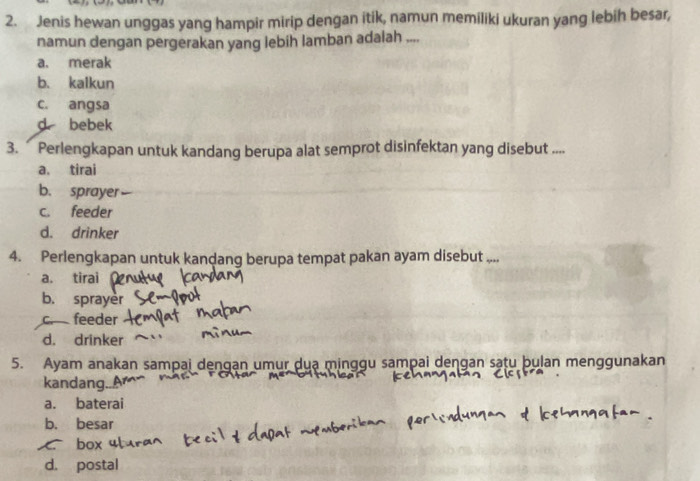 (2), (3), dan (4)
2. Jenis hewan unggas yang hampir mirip dengan itik, namun memiliki ukuran yang lebih besar,
namun dengan pergerakan yang lebih lamban adalah ....
a. merak
b. kalkun
c. angsa
d. bebek
3. Perlengkapan untuk kandang berupa alat semprot disinfektan yang disebut ....
a. tirai
b. sprayer
c. feeder
d. drinker
4. Perlengkapan untuk kandang berupa tempat pakan ayam disebut ....
a. tirai penutup kandang
b. sprayer Semprot
c. feeder tempat makan
d. drinker ~ '' minum
5. Ayam anakan sampai dengan umur dua minggu sampai dengan satu bulan menggunakan
kandang... masih rentan membutuhkan kehangatan ekstra.
a. baterai
b. besar
c. box ukuran kecil & dapat memberikan perlindungan & kehangatan.
d. postal